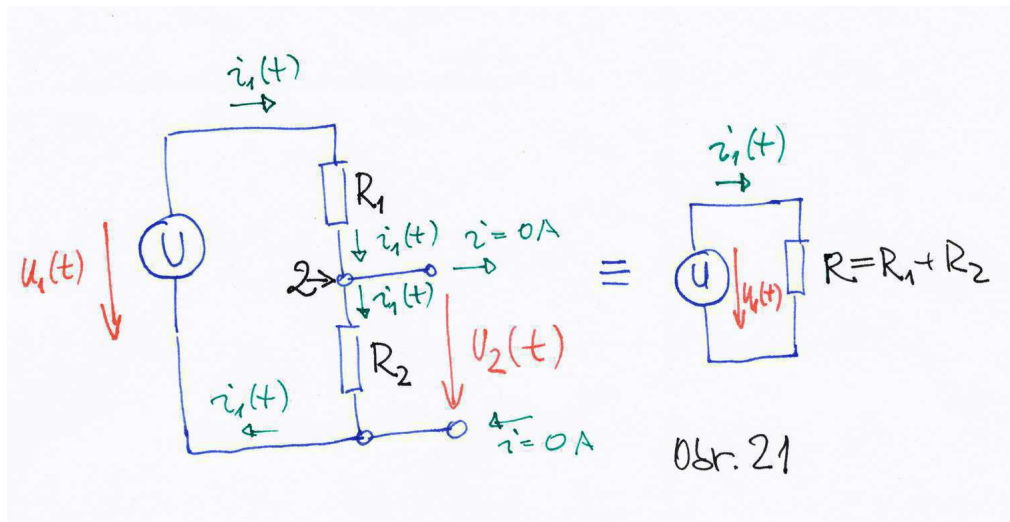 i₁(t)
R₁
U
u₁(t)
i₁(t)
i = 0A
2→
i₁(t)
R₂
U₂(t)
i₁(t)
i = 0A
≡
i₁(t)
u
u₁(t)
R=R₁+R₂
Obr. 21